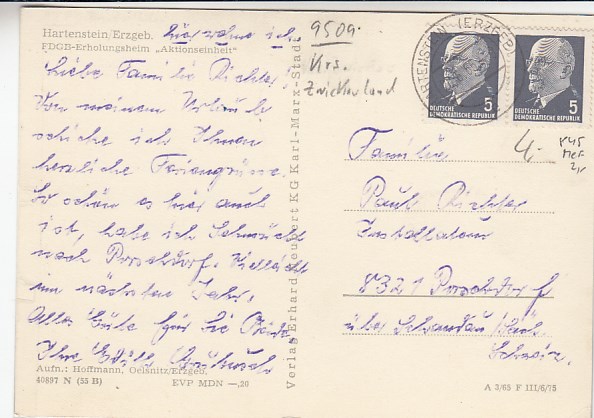 Hartenstein/Erzgeb. hier wohne ich
FDGB-Erholungsheim „Aktionseinheit"
Liebe Familie Richter!
Von meinem Urlaub
schicke ich Ihnen
herzliche Feriengrüße.
So schön es hier auch
ist, habe ich Sehnsucht
nach Porschdorf. Vielleicht
im nächsten Jahr.
Alles Gute für Sie
Ihre Edith
Aufn.: Hoffmann, Oelsnitz/Erzgeb.
40897 N (55 B) EVP MDN —,20
Verlag Erhard Neubert KG Karl-Marx-Stadt
9509
Krs.
Zwickau Land
HARTENSTEIN (ERZGEB)
5
DEUTSCHE
DEMOKRATISCHE REPUBLIK
5
DEUTSCHE
DEMOKRATISCHE REPUBLIK
4,-
Familie
Paul Richter
Installateur
8321 Porschdorf
über Schandau/Sächs.
Schweiz.
A 3/65 F III/6/75